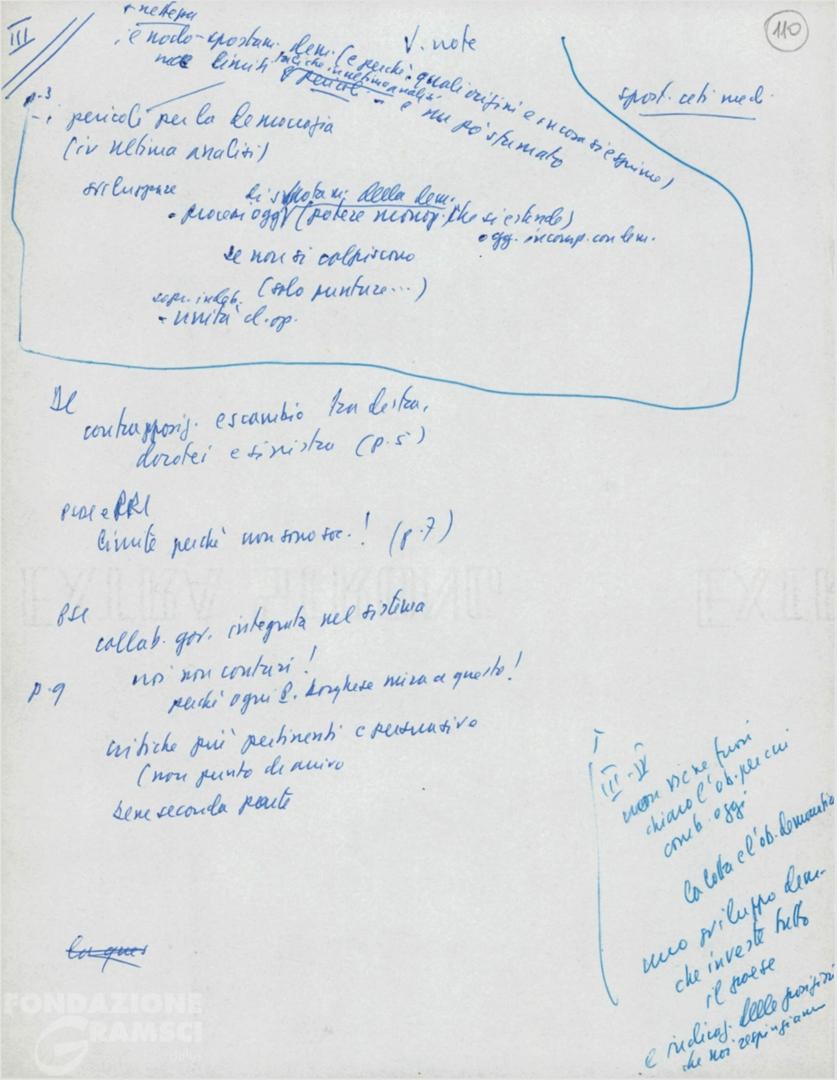 III
+ nettezza
V. note
110
è nodo - spostam. dem. (e perché, quali origini e in cosa si esprime)
nel limiti
pericoli - è un po' sfumato
spost. ceti medi
p. 3
- pericoli per la democrazia
(in ultima analisi)
sviluppare
di svuotam. della dem.
• processi oggi (potere monop. che si estende)
ogg. incomp. con dem.
se non si colpiscono
(solo punture...)
- unità d. op.
DC
contrapposiz. e scambio tra destra,
dorotei e sinistra (p. 5)
PSDI e PRI
limite perché non sono soc.! (p. 7)
PSI
collab. gov. integrata nel sistema
noi non contrari!
p. 9
perché ogni g. borghese mira a questo!
critiche più pertinenti e persuasive
(non punto di arrivo
bene seconda parte
I
III - IV
non viene fuori
chiaro l'ob. per cui
comb. oggi
la lotta e l'ob. democratico
uno sviluppo dem.
che investe tutto
il paese
e indicaz. delle posizioni
che noi respingiamo
FONDAZIONE
GRAMSCI